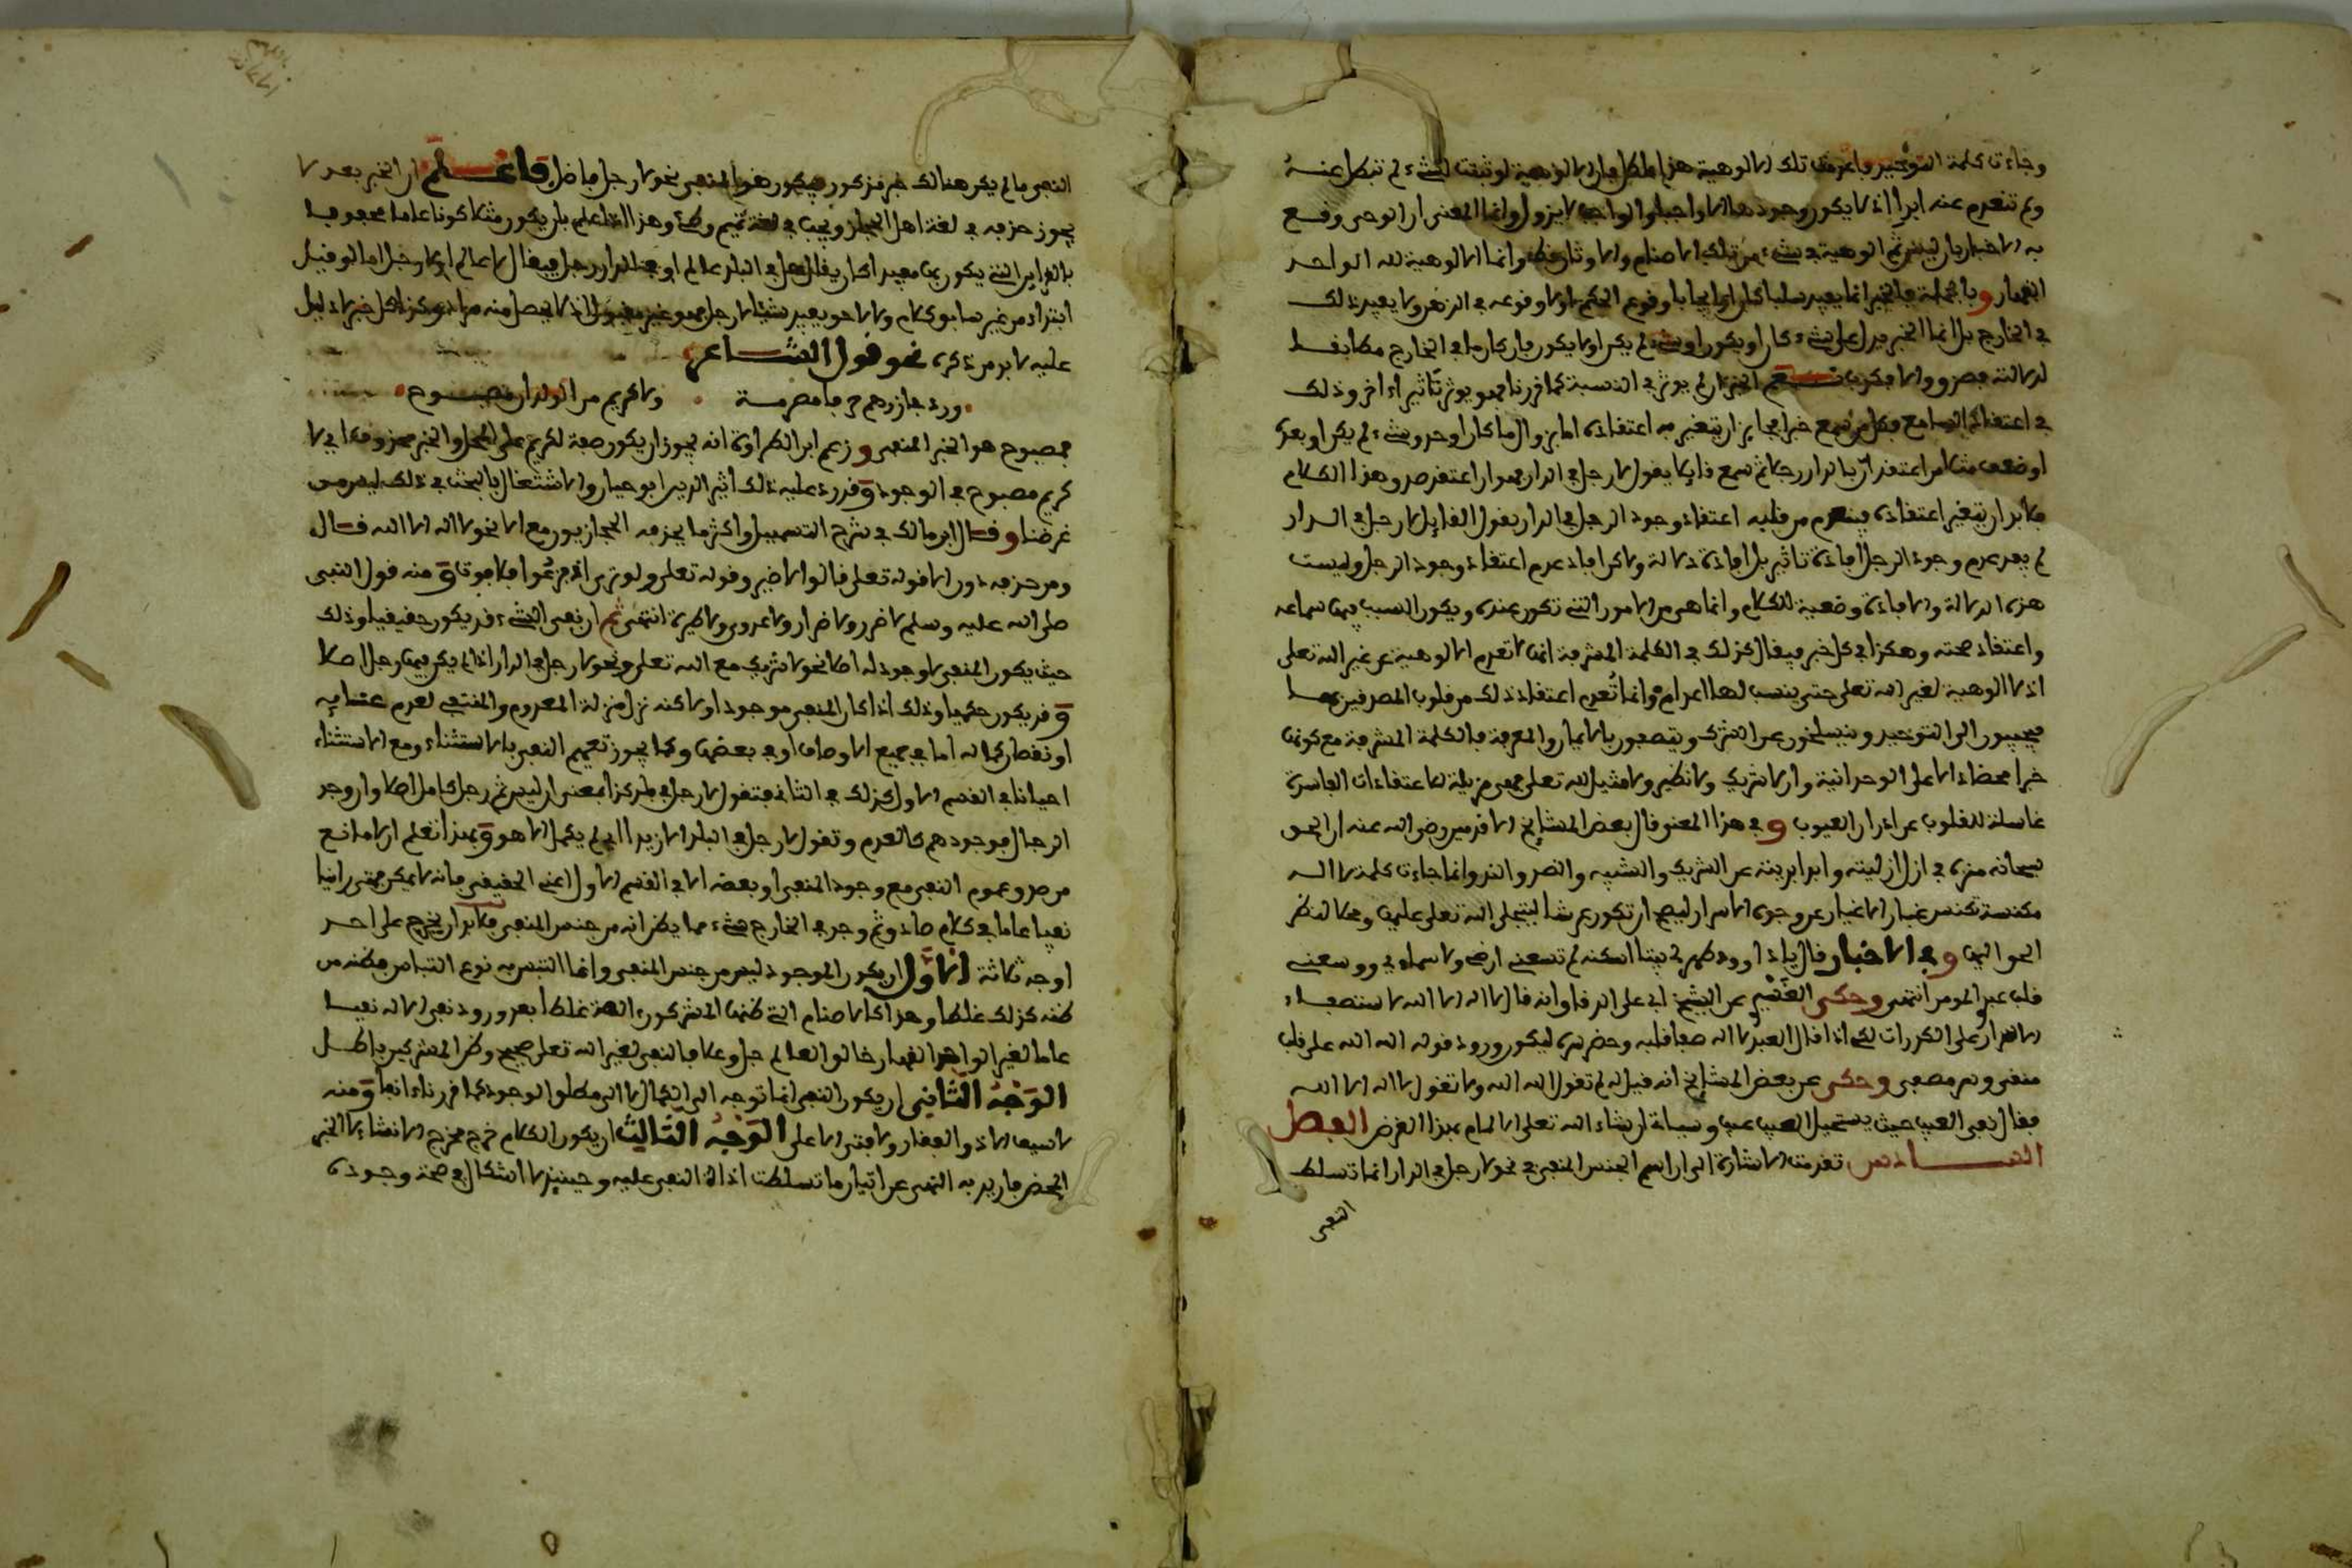 وجاءت كلمة التوحيد واعدمت تلك الالوهية هذا باطل فان الالوهية لو ثبتت لشيء لم تبطل عنه
ولم تنعدم عنه ابدا اذ لا يكون وجودها الا واجبا والواجب لا يزول وانما المعنى ان الوحي وقع
به الاخبار بان ليس ثم الوهية في شيء من تلك الاصنام والاوثان قط وانما الالوهية لله الواحد
القهار وبالجملة فالخبر انما يفيد سلبا كان او ايجابا وقوع الحكم او لا وقوعه في الذهن ولا يفيد ذلك
في الخارج بل انما الخبر يدل على شيء كان او يكون او شيء لم يكن او لا يكون فان كان ما في الخارج مطابقا
لدلالته فصدق والا فكذب نعم الخبر ان لم يوثر في النسبة كما قررنا فهو يوثر تاثيرا اخر وذلك
في اعتقاد السامع فكل من سمع خبرا فجايز ان يتغير به اعتقاده اما بزوال ما كان او حدوث شيء لم يكن او بعده
او ضعف مثلا من اعتقد ان بالدار رجلا ثم سمع قايلا يقول لا رجل في الدار فهو ان اعتقد صدق هذا الكلام
فلا بد ان يتغير اعتقاده فينعدم من قلبه اعتقاد وجود الرجل في الدار بقول القايل لا رجل في الدار
لم يعد عدم وجود الرجل افادة تاثير بل افادة دلالة ولاكن افاد عدم اعتقاد وجود الرجل وليست
هذه الدلالة والافادة وضعية للكلام وانما هي من الامور التي تكون عنده ويكون السبب فيها سماعه
واعتقاد صحته وهكذا في كل خبر فيقال كذلك في الكلمة المشرفة انها لا تعدم الالوهية عن غير الله تعلى
اذ لا الوهية لغير الله تعلى حتى ينسب لها اعدام وانما تعدم اعتقاد ذلك من قلوب المصدقين بها
فيجيبون الى التوحيد وينسلخون عن الشرك ويتصفون بالايمان والمعرفة فالكلمة المشرفة مع كونها
خبرا محضا دالا على الوحدانية وان لا شريك ولا نظير ولا مثيل لله تعلى فهي مزيلة للاعتقادات الفاسدة
غاسلة للقلوب عن ادران العيوب وفي هذا المعنى قال بعض المشايخ الاقدمين رضي الله عنه ان الحق
سبحانه منزه في ازل ازليته وابد ابديته عن الشريك والشبيه والضد والند وانما جاءت كلمة لا اله
مكنسة تكنس غبار الاغيار عن وجوه الاسرار ليصح ان تكون عرشا ليتجلى الله تعلى عليها ومحلا لنظر
الحق اليها وفي الاخبار قال يا داوود طهر لي بيتا اسكنه لم تسعني ارضي ولا سماءي ووسعني
قلب عبدي المومن انتهى وحكى القشيري عن الشيخ ابي علي الدقاق انه قال لا اله الا الله لاستصفاء
الاسرار على الكدورات لكي اذا قال العبد لا اله صفا قلبه وحضر سره ليكون ورود قوله الا الله على قلب
منقى وسر مصفى وحكى عن بعض المشايخ انه قيل له لم تقول الله الله ولا تقول لا اله الا الله
فقال نفي العيب حيث يستحيل العيب عيب وسياتي ان شاء الله تعلى الالمام بهذا الغرض الفصل
الســـادس تقدمت الاشارة الى ان اسم الجنس المنفي في نحو لا رجل في الدار انما تسلط
النفي
النفي ما لم يكن هنالك خبر مذكور فيكون هو المنفي نحو لا رجل فاضل فاعـــلم ان الخبر بعد لا
يجوز حذفه في لغة اهل الحجاز ويجب في لغة تميم وطيء وهذا اذا علم بان يكون مثلا كونا عاما محفوفا
بالقراين التي يكون بها مفيدا كان يقال هل في البلد عالم او في الدار رجل فيقال لا عالم او لا رجل اما لو قيل
ابتداء من غير سابق كلام ولا لاحق يفيد شيئا لا رجل فهو غير مقبول اذ لا يحصل منه مراد وهكذا كل خبر لا دليل
عليه لا بد من ذكره نحو قول الشـــاعر
ورد جازرهم حرفا مصرمة ولا كريم من الولدان مصبـــوح
فمصبوح هو الخبر المنفي وزعم ابن الطراوة انه يجوز ان يكون صفة لكريم على المحل والخبر محذوف اي لا
كريم مصبوح في الوجود وقد رد عليه ذلك اثير الدين ابو حيان والاشتغال بالبحث في ذلك ليس من
غرضنا وقال ابن مالك في شرح التسهيل واكثر ما يحذفه الحجازيون مع الا نحو لا اله الا الله قال
ومن حذفه دون الا قوله تعلى قالوا لا ضير وقوله تعلى ولو ترى اذ فزعوا فلا فوت ومنه قول النبي
صلى الله عليه وسلم لا ضرر ولا ضرار ولا عدوى ولا طيرة انتهى ثم ان نفي الشيء قد يكون حقيقيا وذلك
حيث يكون المنفي لا وجود له اصلا نحو لا شريك مع الله تعلى ونحو لا رجل في الدار اذا لم يكن فيها رجل اصلا
وقد يكون حكميا وذلك اذا كان المنفي موجودا ولاكنه نزل منزلة المعدوم والمنتفي لعدم غنايه
او نقصان كماله اما في جميع الاوصاف او في بعضها وكما يجوز تعميم النفي بلا استثناء ومع الاستثناء
احيانا في القسم الاول كذلك في الثاني فتقول لا رجل في بلد كذا بمعنى ان ليس ثم رجل كامل اصلا وان وجد
الرجال فوجودهم كالعدم وتقول لا رجل في البلد الا زيد اي لم يكمل الا هو وبهذا تعلم ان لا مانع
من صدق عموم النفي مع وجود المنفي او بعضه الا في القسم الاول اعني الحقيقي فانه لا يمكن فمتى راينا
نفيا عاما في كلام صادق ثم وجد في الخارج شيء مما يظن انه من جنس المنفي فلا بد ان يخرج على احد
اوجه ثلاثة الاول ان يكون الموجود ليس من جنس المنفي وانما التبس به نوع التباس فظنه من
ظنه كذلك غلطا وهذا كالاصنام التي ظنها المشركون الهة غلطا بعد ورود نفي الاله نفيا
عاما لغير الواحد القهار خالق العالم جل وعلا فالنفي لغير الله تعلى صحيح وظن المشركين باطل
الوجه الثاني ان يكون النفي انما توجه الى الكمال لا الى مطلق الوجود كما قررناه انفا ومنه
لا سيف الا ذو الفقار ولا فتى الا علي الوجه الثالث ان يكون الكلام خرج مخرج الانشاء لا الخبر
المحض فاريد به النهي عن اتيان ما تسلطت اداة النفي عليه وحينيذ لا اشكال في صحة وجوده